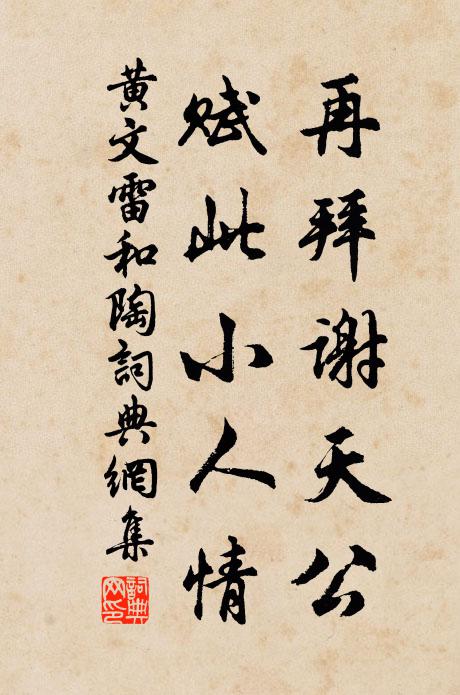 再拜谢天公
赋此小人情
黃文雷和陶詞典網集
詞典网印